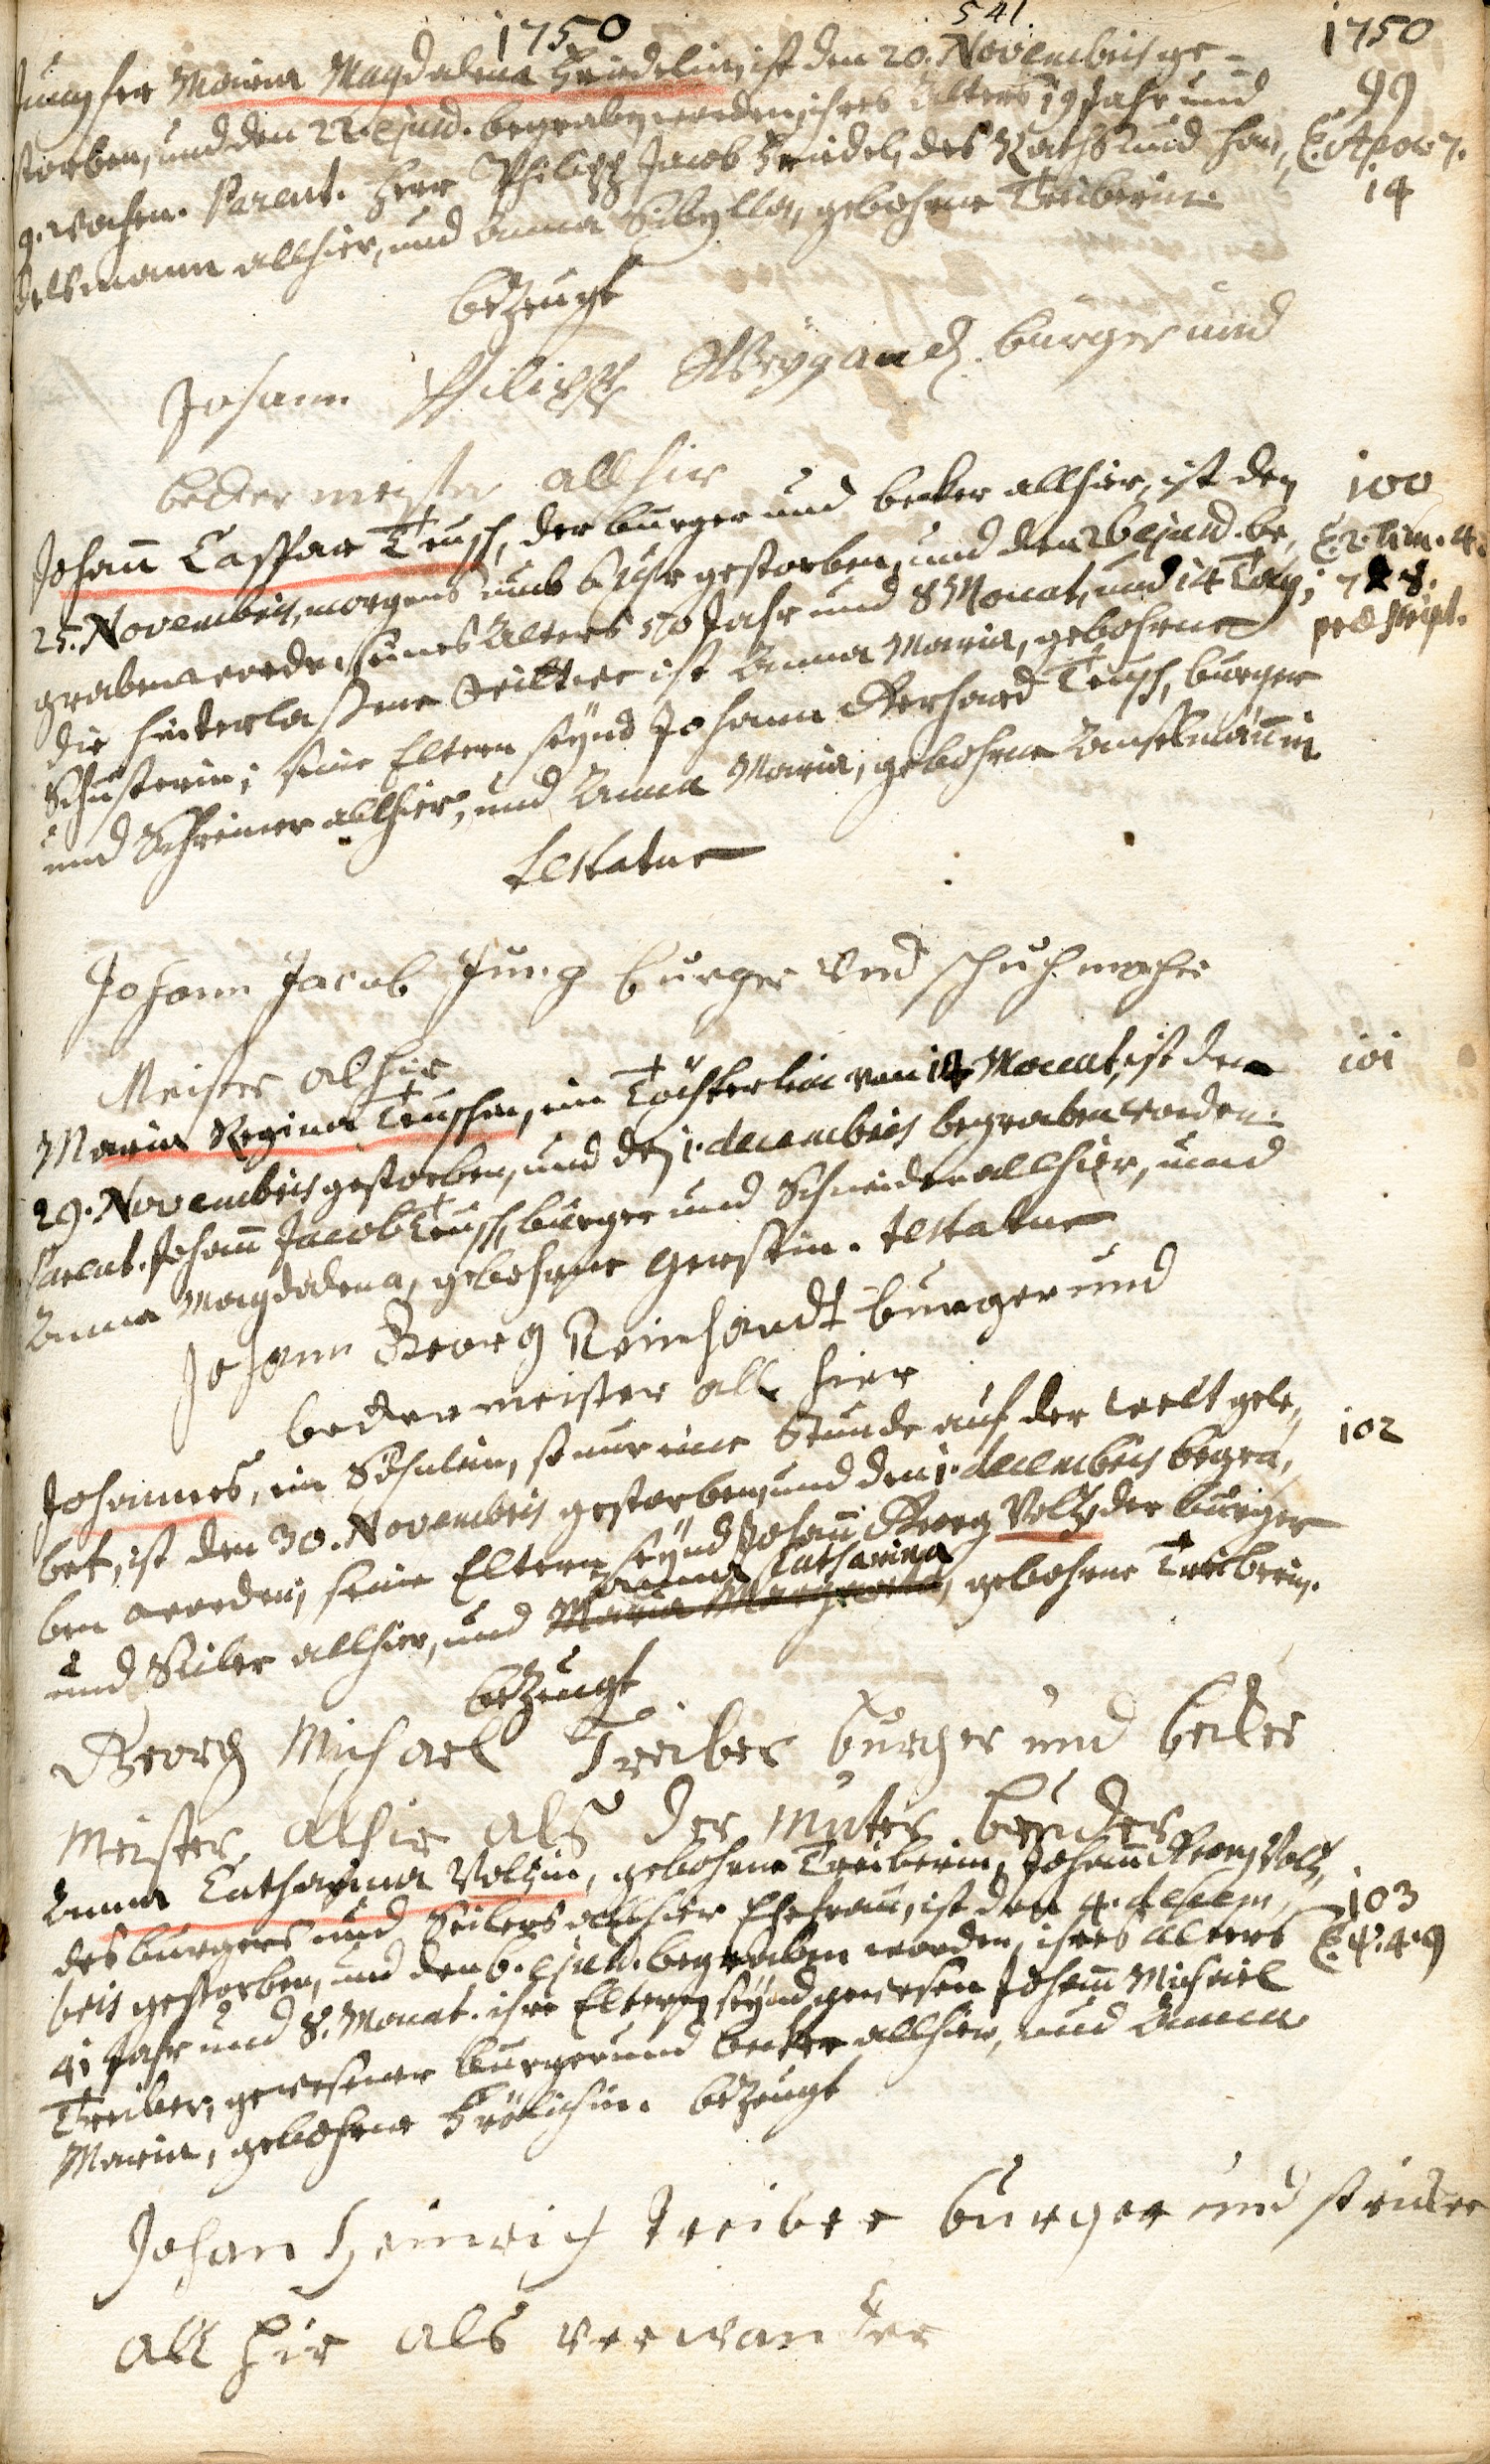 1750 541. 1750
Jungfer Maria Magdalena Friedelin, ist den 20. Novembris ge-
storben, und den 22. ejusd. begraben worden, ihres Alters 19 Jahr und 99
9. wochen. Parent. Herr Philipp Jacob Friedel, des Raths und Han, E. Apoc 7.
delsmann allhier, und Anna Sibylla, gebohrne Treiberin. 14
bezeugt
Johann Philipp Weygandt burger und
becker meister allhir
Johann Caspar Teusch, der burger und becker allhier, ist den 100
25. Novembris, morgens umb 6 Uhr gestorben, und den 26 ejusd. be, E. 2. Tim. 4.
graben worden, seines Alters 50 Jahr und 8 Monat, und 14 Tag; 7 & 8.
die hinterlaßene Wittwe ist Anna Maria, gebohrne præscript.
Schusterin; seine Eltern seynd Johann Gerhard Teusch, burger
und Schreiner allhier, und Anna Maria, gebohrne Anselmännin
testatur
Johann Jacob Jung burger und schuhmacher
Meister alhir
Maria Regina Teuschin, ein Töchterlein von Monat, ist den 101
29. Novembris gestorben, und den 1. decembris begraben worden.
Parent. Johann Jacob Teusch, burger und Schneider allhier, und
Anna Magdalena, gebohrne Gerstin. testatur
Johann Georg Reinhardt burger und
becker meister all hier
Johannes, ein Söhnlein, so nur eine Stunde auf der welt gele, 102
bet, ist den 30. Novembris gestorben, und den 1. decembris begra,
ben worden; seine Eltern seynd Johann Georg Voltz, der burger
Anna Catharina
und Seiler allhier, und Maria Margaretha, gebohrne Treiberin.
bezeugt
Georg Michael Treiber burger und becker
Meister alhir als der muter bruder
Anna Catharina Voltzin, gebohrne Treiberin, Johann Georg Voltz,
des burgers und Seilers allhier Ehefrau, ist den 4. decem, 103
bris gestorben, und den 6. ejusd. begraben worden, ihres alters E. ψ. 4. 9
41 Jahr und 8. Monat. ihre Eltern seynd gewesen Johann Michael
Treiber, gewesener burger und becker allhier, und Anna
Maria, gebohrne Frölichin. bezeugt
Johan Heinrich Treiber burger und stricker
all hir als verwanter